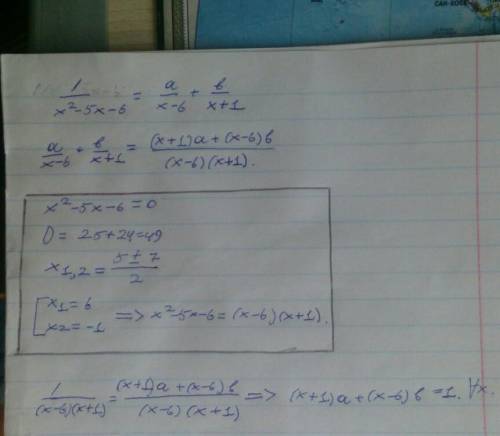 САН-ХОСЕ
1/(x²-5x-6) = a/(x-6) + b/(x+1)
a/(x-6) + b/(x+1) = ((x+1)a+(x-6)b)/((x-6)(x+1)).
x²-5x-6=0
D= 25+24=49
x₁,₂= (5±7)/2
[x₁=6
x₂=-1 => x²-5x-6=(x-6)(x+1).
1/((x-6)(x+1)) = ((x+1)a+(x-6)b)/((x-6)(x+1)) => (x+1)a+(x-6)b=1. ∀x.